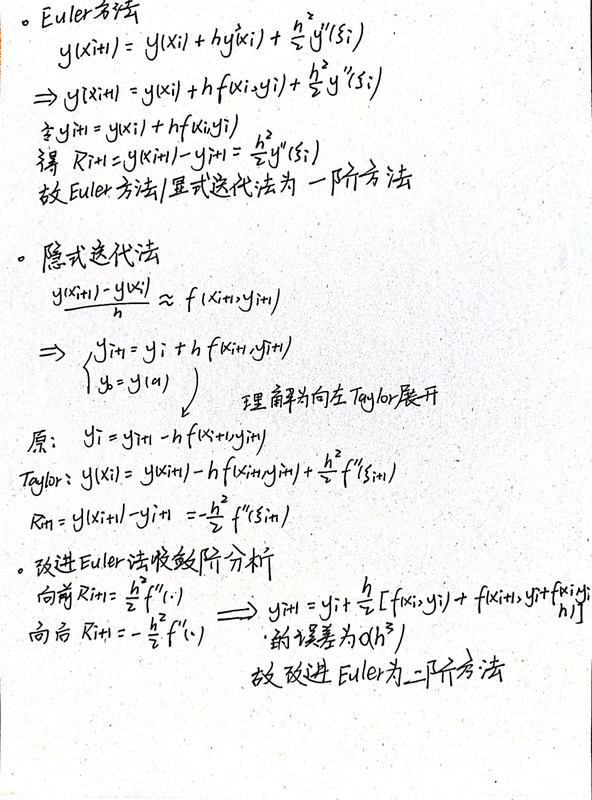 。Euler方法
y(xi+1) = y(xi) + hy'(xi) + h²/2 y''(ξi)
⇒ y(xi+1) = y(xi) + h f(xi,yi) + h²/2 y''(ξi)
令yi+1 = y(xi) + hf(xi,yi)
得 Ri+1 = y(xi+1) - yi+1 = h²/2 y''(ξi)
故Euler方法/显式迭代法为一阶方法
。隐式迭代法
(y(xi+1) - y(xi))/h ≈ f(xi+1,yi+1)
⇒ { yi+1 = yi + h f(xi+1,yi+1)
y0 = y(a)
理解为向左Taylor展开
原: yi = yi+1 - hf(xi+1,yi+1)
Taylor: y(xi) = y(xi+1) - hf(xi+1,yi+1) + h²/2 f''(ξi+1)
Ri+1 = y(xi+1) - yi+1 = -h²/2 f''(ξi+1)
。改进Euler法收敛阶分析
向前 Ri+1 = h²/2 f''(·)
向后 Ri+1 = -h²/2 f''(·)
⇒ yi+1 = yi + h/2 [f(xi,yi) + f(xi+1, yi+f(xi,yi)h)]
的误差为o(h³)
故改进Euler为二阶方法